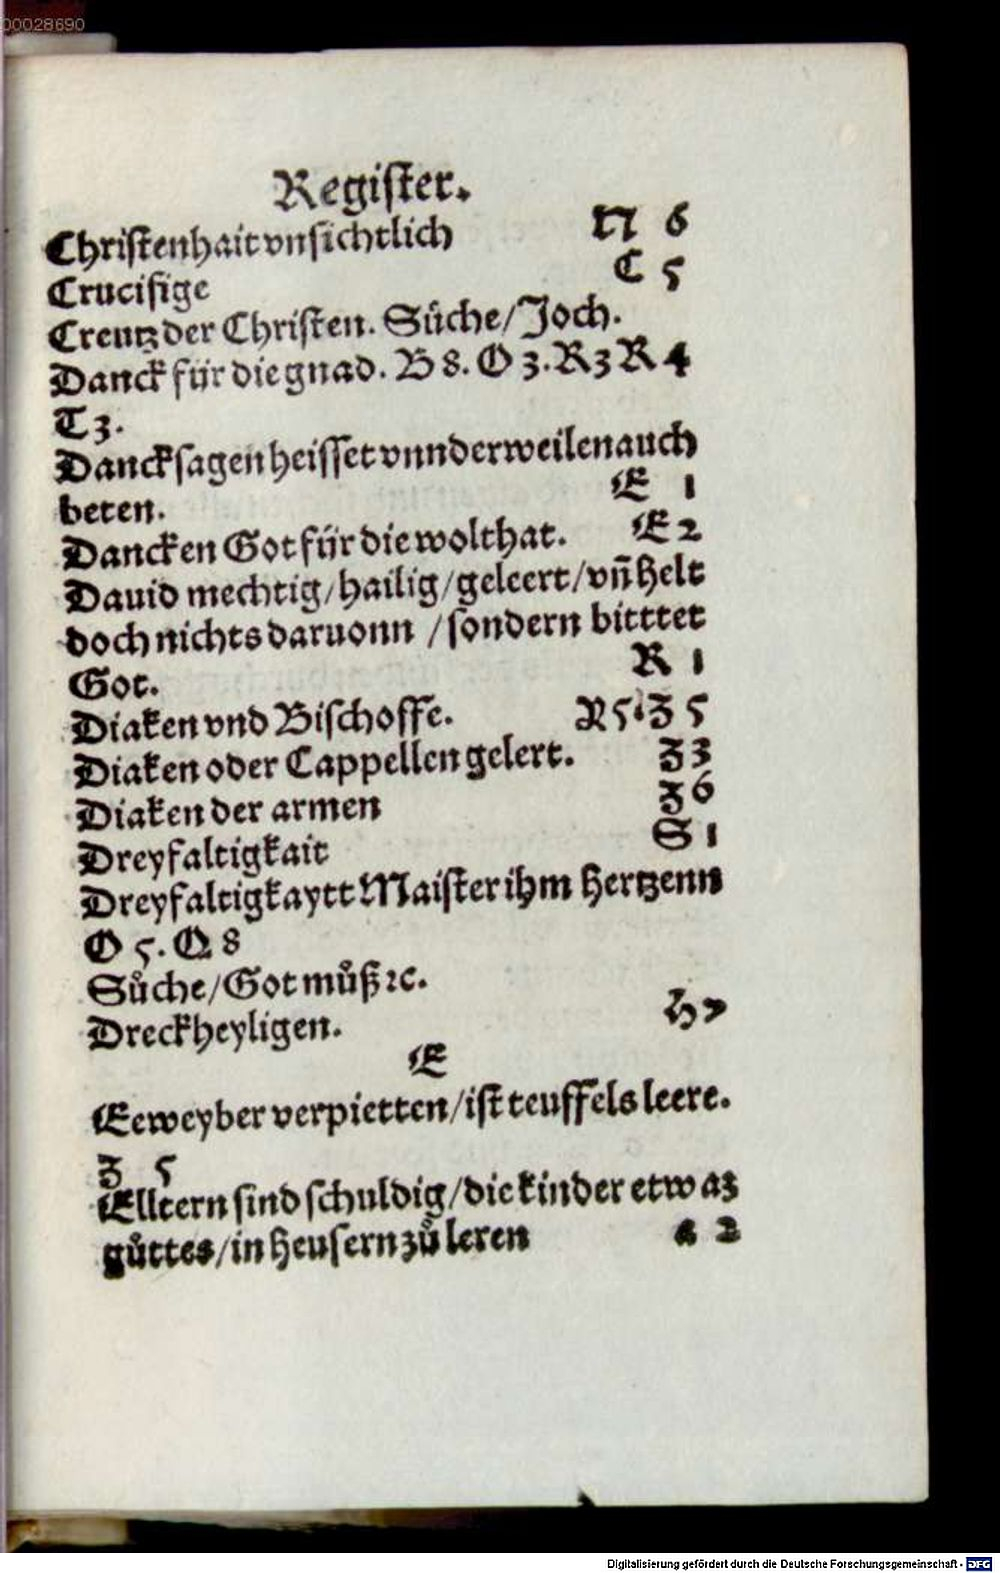 00028690
Register.
Christenhait vnsichtlich N 6
Crucifige C 5
Creutz der Christen. Sůche/Joch.
Danck für die gnad. B 8. O 3. R 3 R 4
T 3.
Dancksagen heisset vnnderweilen auch
beten. E 1
Dancken Got für die wolthat. E 2
Dauid mechtig/hailig/geleert/vñ helt
doch nichts daruonn /sondern bitttet
Got. R 1
Diaken vnd Bischoffe. R 5. Z 5
Diaken oder Cappellen gelert. Z 3
Diaken der armen Z 6
Dreyfaltigkait S 1
Dreyfaltigkaytt Maister ihm hertzenn
O 5. Q 8
Sůche/Got můß ꝛc.
Dreckheyligen. h 7
E
Eeweyber verpietten/ist teuffels leere.
Z 5
Elltern sind schuldig/die kinder etwaz
gůttes/in heusern zů leren a 2
Digitalisierung gefördert durch die Deutsche Forschungsgemeinschaft - DFG